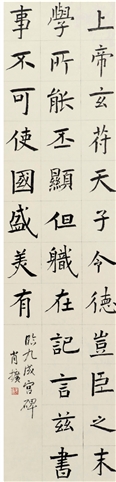 上帝玄符天子令德豈臣之末
學所能丕顯但職在記言茲書
事不可使國盛美有
臨九成宮碑
肖撲